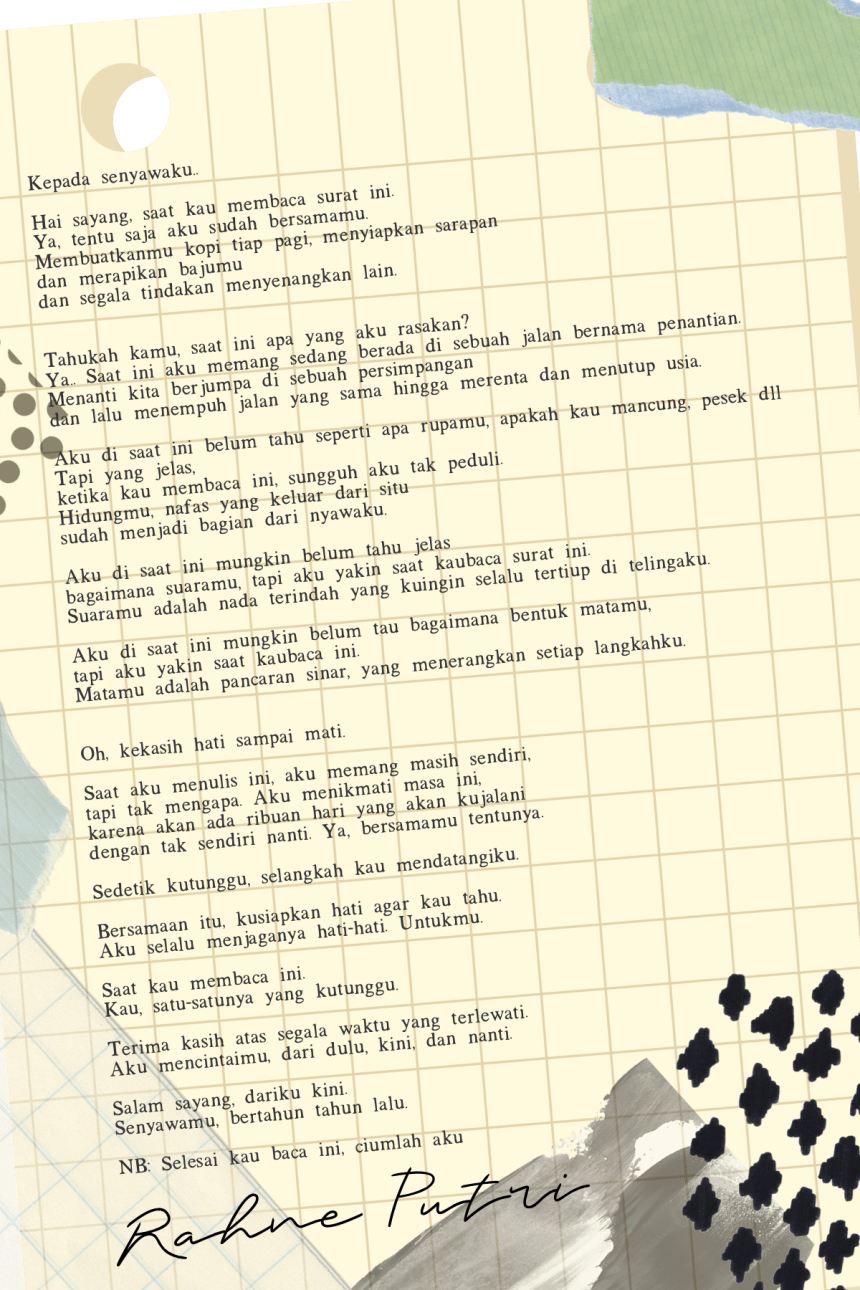 Kepada senyawaku..
Hai sayang, saat kau membaca surat ini.
Ya, tentu saja aku sudah bersamamu.
Membuatkanmu kopi tiap pagi, menyiapkan sarapan
dan merapikan bajumu
dan segala tindakan menyenangkan lain.
Tahukah kamu, saat ini apa yang aku rasakan?
Ya.. Saat ini aku memang sedang berada di sebuah jalan bernama penantian.
Menanti kita berjumpa di sebuah persimpangan
dan lalu menempuh jalan yang sama hingga merenta dan menutup usia.
Aku di saat ini belum tahu seperti apa rupamu, apakah kau mancung, pesek dll
Tapi yang jelas,
ketika kau membaca ini, sungguh aku tak peduli.
Hidungmu, nafas yang keluar dari situ
sudah menjadi bagian dari nyawaku.
Aku di saat ini mungkin belum tahu jelas
bagaimana suaramu, tapi aku yakin saat kaubaca surat ini.
Suaramu adalah nada terindah yang kuingin selalu tertiup di telingaku.
Aku di saat ini mungkin belum tau bagaimana bentuk matamu,
tapi aku yakin saat kaubaca ini.
Matamu adalah pancaran sinar, yang menerangkan setiap langkahku.
Oh, kekasih hati sampai mati.
Saat aku menulis ini, aku memang masih sendiri,
tapi tak mengapa. Aku menikmati masa ini,
karena akan ada ribuan hari yang akan kujalani
dengan tak sendiri nanti. Ya, bersamamu tentunya.
Sedetik kutunggu, selangkah kau mendatangiku.
Bersamaan itu, kusiapkan hati agar kau tahu.
Aku selalu menjaganya hati-hati. Untukmu.
Saat kau membaca ini.
Kau, satu-satunya yang kutunggu.
Terima kasih atas segala waktu yang terlewati.
Aku mencintaimu, dari dulu, kini, dan nanti.
Salam sayang, dariku kini.
Senyawamu, bertahun tahun lalu.
NB: Selesai kau baca ini, ciumlah aku
Rahne Putri